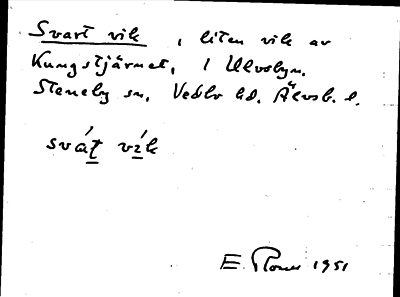 Svart vik, liten vik av
Kungstjärnet, i Ulvsbyn.
Steneby sn, Vedbo hd. Älvsb. l.
svát vík
E. 1951